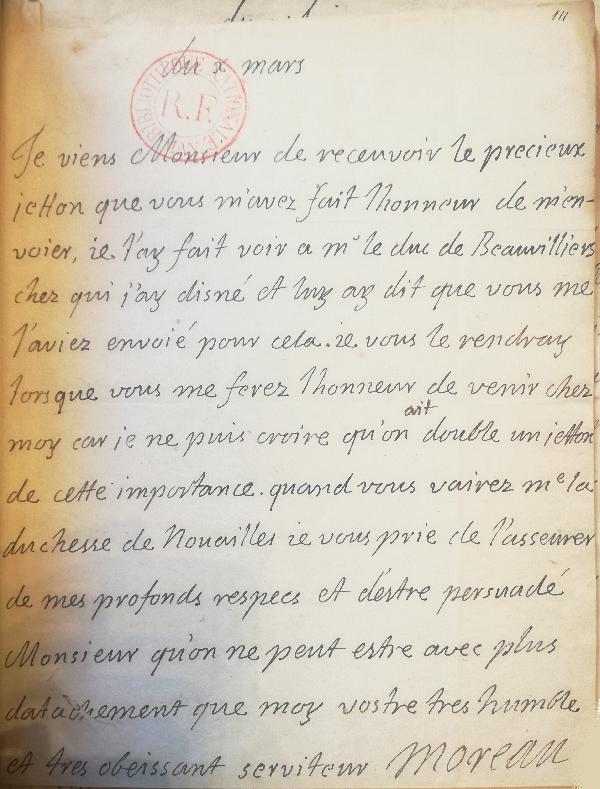 111
du x mars
BIBLIOTHEQUE NATIONALE
R.F.
Je viens Monsieur de recevoir le precieux
jetton que vous m'avez fait lhonneur de m'en-
voier, ie l'ay fait voir a mr le duc de Beauvilliers
chez qui j'ay disné et luy ay dit que vous me
l'aviez envoié pour cela. ie vous le rendray
lorsque vous me ferez lhonneur de venir chez
moy car ie ne puis croire qu'on ait double un jetton
de cette importance. quand vous vairez me la
duchesse de Nouailles ie vous prie de l'asseurer
de mes profonds respecs et d'estre persuadé
Monsieur qu'on ne peut estre avec plus
datachement que moy vostre tres humble
et tres obeissant serviteur Moreau